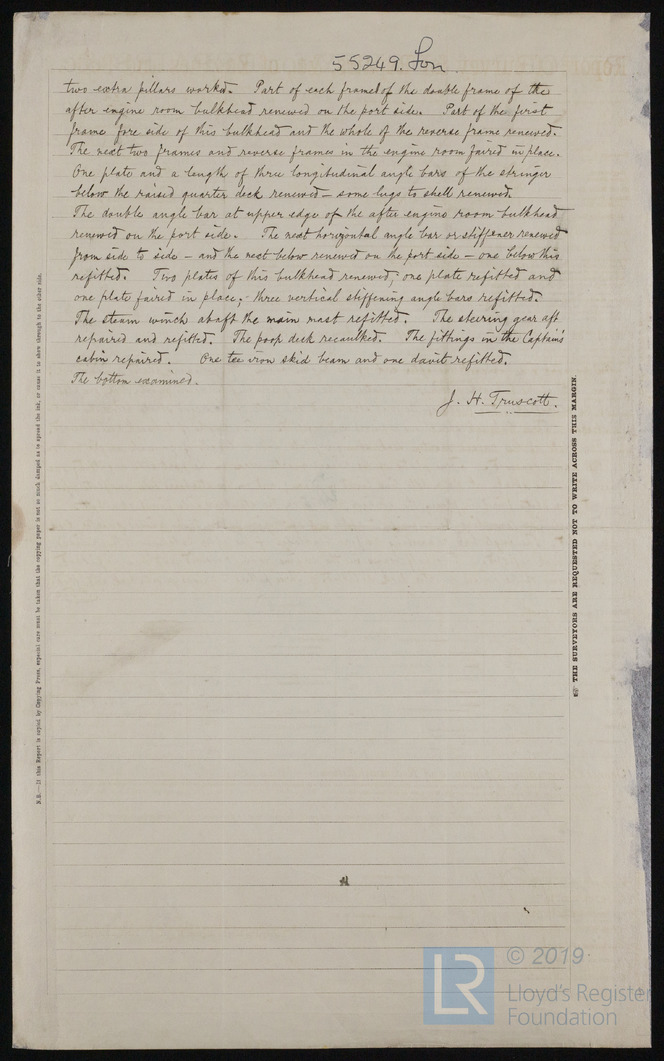 55249. Lon
two extra pillars worked. Part of each frame of the double frame of the
after engine room bulkhead renewed on the port side. Part of the first
frame fore side of this bulkhead and the whole of the reverse frame renewed.
The next two frames and reverse frames in the engine room faired in place.
One plate and a length of three longitudinal angle bars of the stringer
below the raised quarter deck renewed – some lugs to shell renewed.
The double angle bar at upper edge of the after engine room bulkhead
renewed on the port side. The next horizontal angle bar or stiffener renewed
from side to side – and the next below renewed on the port side – one below this
refitted. Two plates of this bulkhead renewed; one plate refitted and
one plate faired in place; – three vertical stiffening angle bars refitted.
The steam winch abaft the main mast refitted. The steering gear aft
repaired and refitted. The poop deck recaulked. The fittings in the Captain's
cabin repaired. One tee iron skid beam and one davit refitted.
The bottom examined.
J. H. Truscott.
N.B.—If this Report is copied by Copying Press, especial care must be taken that the copying paper is not so much damped as to spread the ink, or cause it to show through to the other side.
THE SURVEYORS ARE REQUESTED NOT TO WRITE ACROSS THIS MARGIN.
© 2019
LR
Lloyd's Register
Foundation